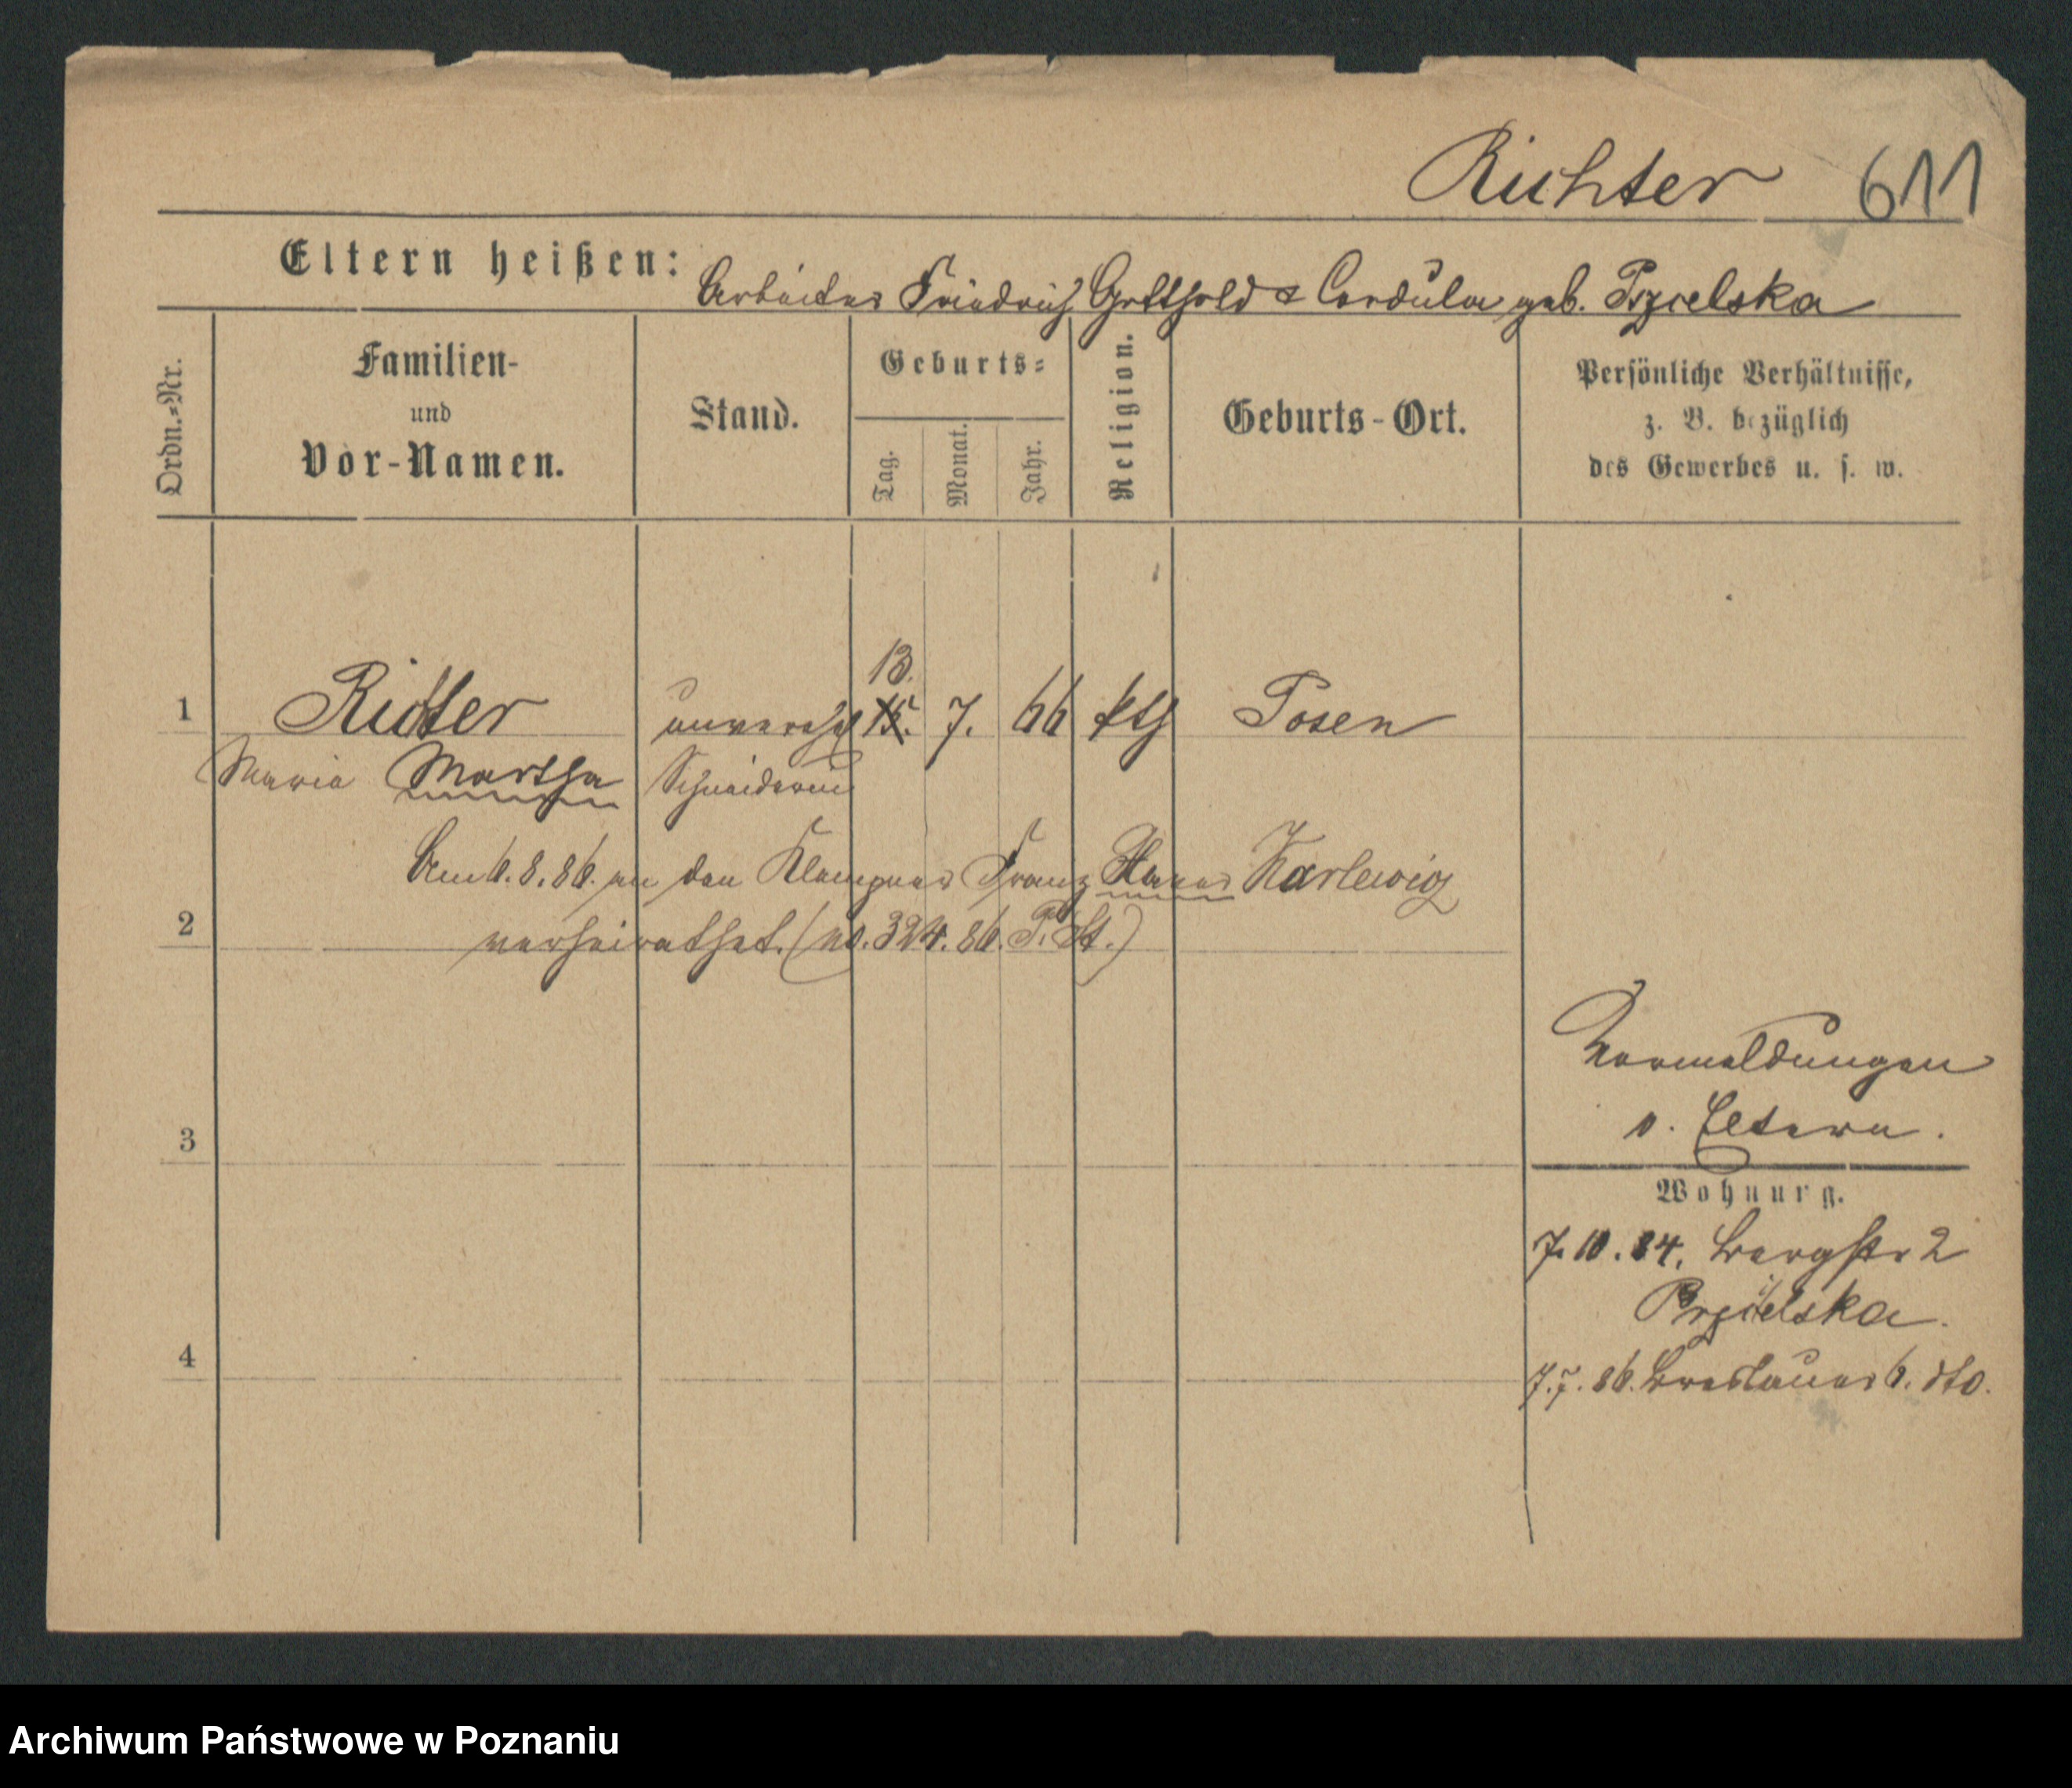 Richter 611
Eltern heißen: Arbeiter Friedrich Gotthold & Cordula geb. Pzielska
Ordn.-Nr.
Familien-
und
Vor-Namen.
Stand.
Geburts-
Tag.
Monat.
Jahr.
Religion.
Geburts-Ort.
Persönliche Verhältnisse,
z. B. bezüglich
des Gewerbes u. s. w.
13.
1 Richter unverehl 15. 7. 66 kth Posen
Maria Martha Schneiderin
Am 6. 8. 86. an den Klempner Franz Karlewicz
2 verheirathet. (No. 324. 86. P. St.)
Vormeldungen
3 s. Eltern.
Wohnung.
7. 10. 84. Bergstr 2
Przielska.
4 7. 7. 86. Breslauer 6. dto.
Archiwum Państwowe w Poznaniu